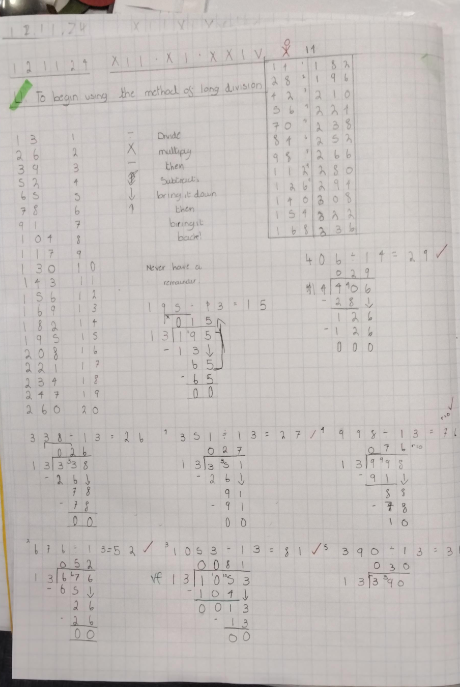 1 2 1 1 2 4 X I I · X I · X X I V
To begin using the method of long division
1 3 1
2 6 2
3 9 3
5 2 4
6 5 5
7 8 6
9 1 7
1 0 4 8
1 1 7 9
1 3 0 1 0
1 4 3 1 1
1 5 6 1 2
1 6 9 1 3
1 8 2 1 4
1 9 5 1 5
2 0 8 1 6
2 2 1 1 7
2 3 4 1 8
2 4 7 1 9
2 6 0 2 0
Divide
X multiply
then
Subtract
↓ bring it down
↑ then
bring it
back
Never have a
remainder
14
1 4 1 8 2
2 8 1 9 6
4 2 2 1 0
5 6 2 2 4
7 0 2 3 8
8 4 2 5 2
9 8 2 6 6
1 1 2 2 8 0
1 2 6 2 9 4
1 4 0 3 0 8
1 5 4 3 2 2
1 6 8 3 3 6
4 0 6 ÷ 1 4 = 2 9 ✓
0 2 9
- 2 8 ↓
1 2 6
- 1 2 6
0 0 0
1 9 5 ÷ 1 3 = 1 5
0 1 5
1 3 1 9 5
- 1 3 ↓
6 5
- 6 5
0 0
3 3 8 ÷ 1 3 = 2 6
0 2 6
1 3 3 3 8
- 2 6 ↓
7 8
- 7 8
0 0
3 5 1 ÷ 1 3 = 2 7
0 2 7
1 3 3 5 1
- 2 6 ↓
9 1
- 9 1
0 0
9 9 8 ÷ 1 3 = 7 6
0 7 6
1 3 9 9 8
- 9 1 ↓
8 8
- 7 8
1 0
6 7 6 ÷ 1 3 = 5 2 ✓
0 5 2
1 3 6 7 6
- 6 5 ↓
2 6
- 2 6
0 0
1 0 5 3 ÷ 1 3 = 8 1 ✓
0 0 8 1
VF 1 3 1 0 5 3
- 1 0 4 ↓
0 0 1 3
- 1 3
0 0
3 9 0 ÷ 1 3 = 3
0 3 0
1 3 3 9 0